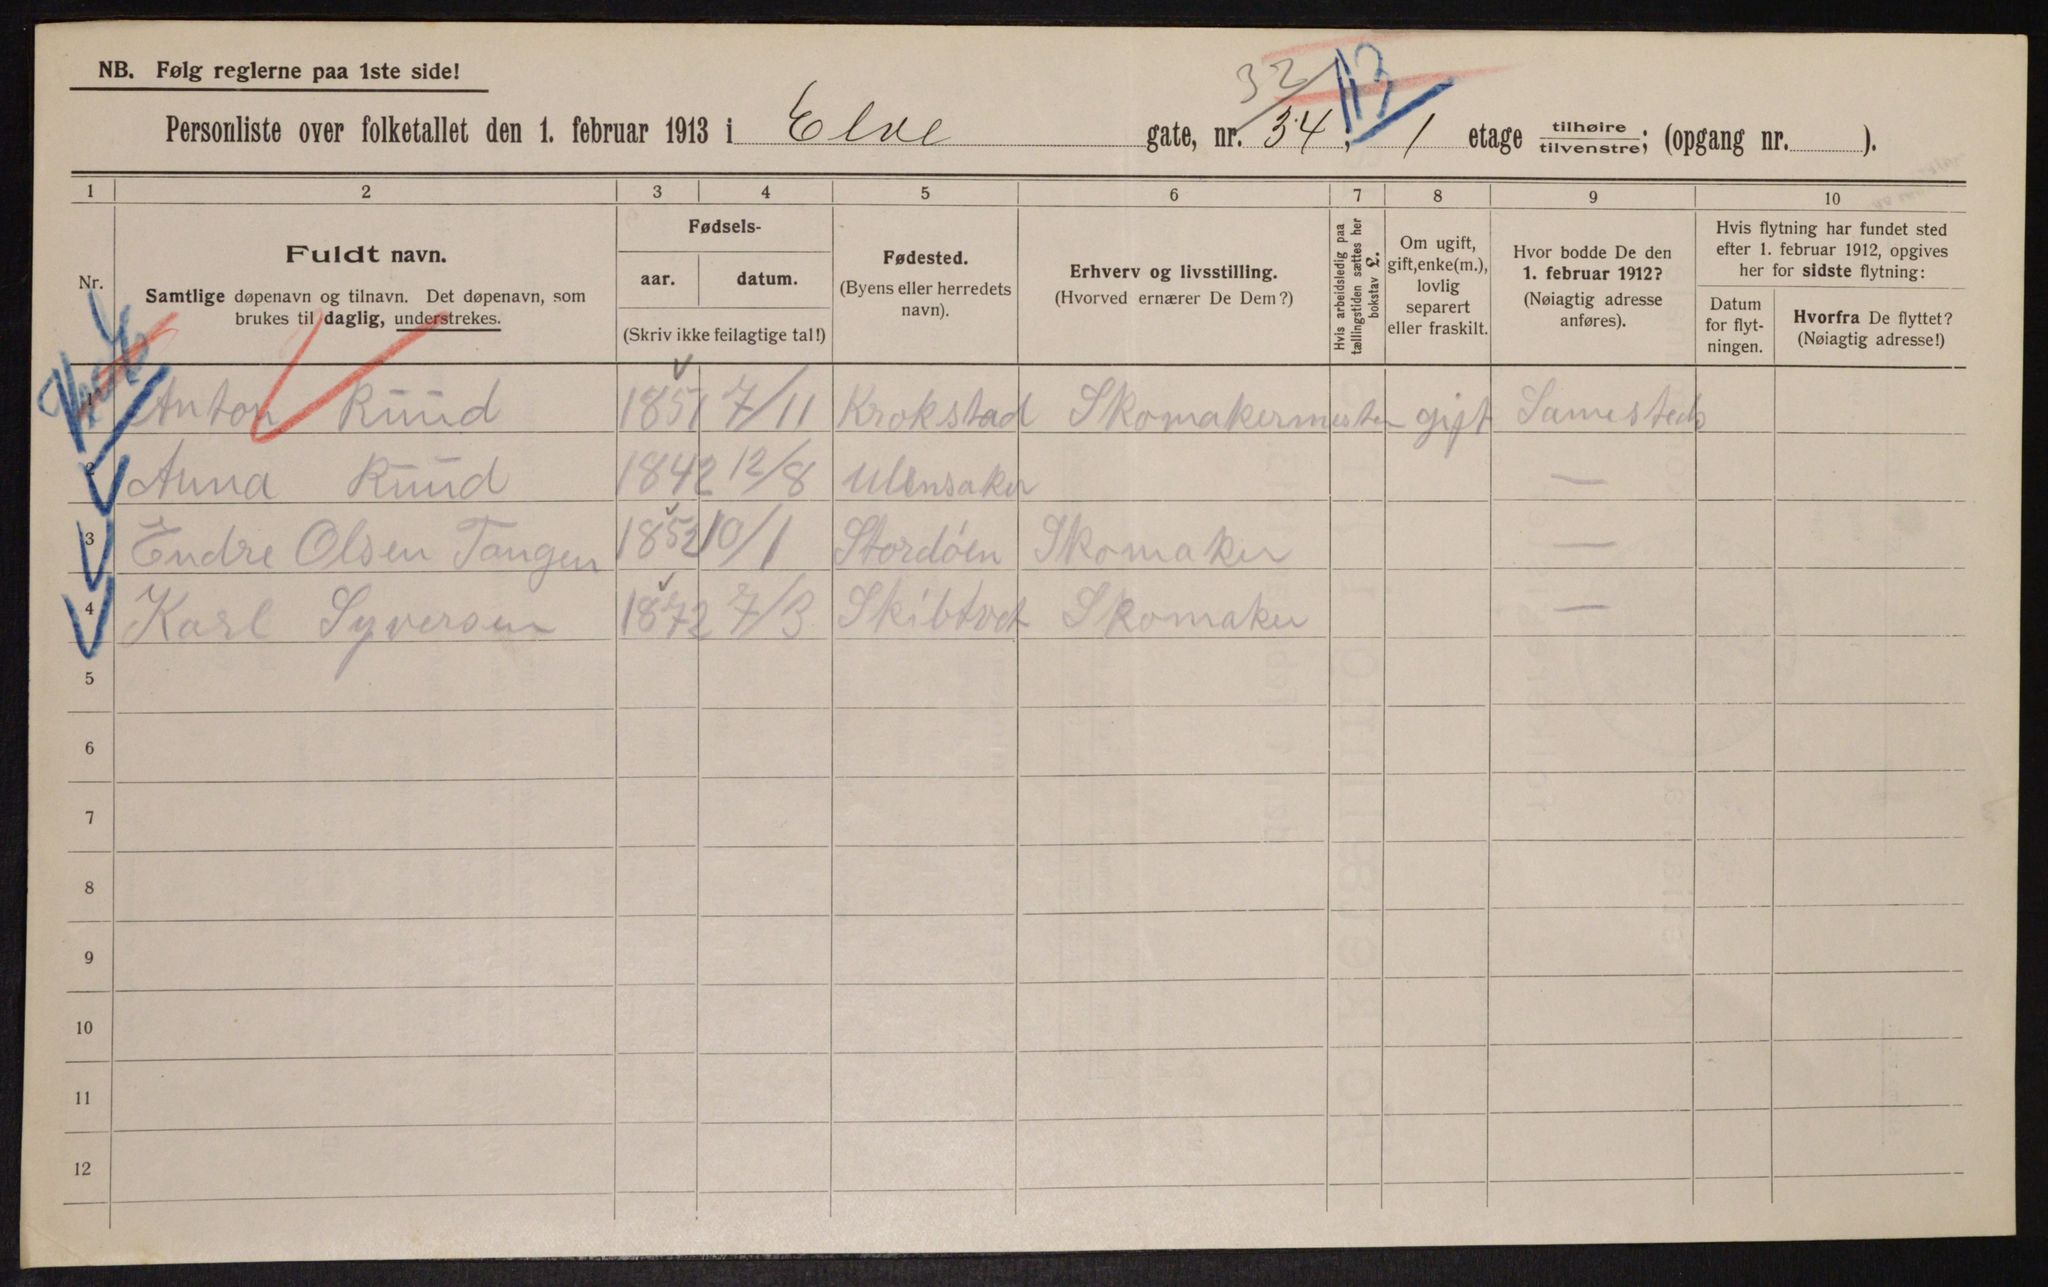 NB. Følg reglerne paa 1ste side!
32/113
Personliste over folketallet den 1. februar 1913 i Elve gate, nr. 34, 1 etage tilhøire/tilvenstre; (opgang nr. ).
1 2 3 4 5 6 7 8 9 10
Nr.
Fuldt navn.
Samtlige døpenavn og tilnavn. Det døpenavn, som
brukes til daglig, understrekes.
Fødsels-
aar. datum.
(Skriv ikke feilagtige tal!)
Fødested.
(Byens eller herredets
navn).
Erhverv og livsstilling.
(Hvorved ernærer De Dem?)
Hvis arbeidsledig paa
tællingstiden sættes her
bokstav L.
Om ugift,
gift, enke(m.),
lovlig
separert
eller fraskilt.
Hvor bodde De den
1. februar 1912?
(Nøiagtig adresse
anføres).
Hvis flytning har fundet sted
efter 1. februar 1912, opgives
her for sidste flytning:
Datum
for flyt-
ningen.
Hvorfra De flyttet?
(Nøiagtig adresse!)
1 Anton Ruud 1851 7/11 Krokstad Skomakermester gift Sammesteds
2 Anna Ruud 1842 12/8 Ullensaker —
3 Endre Olsen Tangen 1852 10/1 Stordøen Skomaker —
4 Karl Syversen 1872 7/3 Skibtvet Skomaker —
5
6
7
8
9
10
11
12